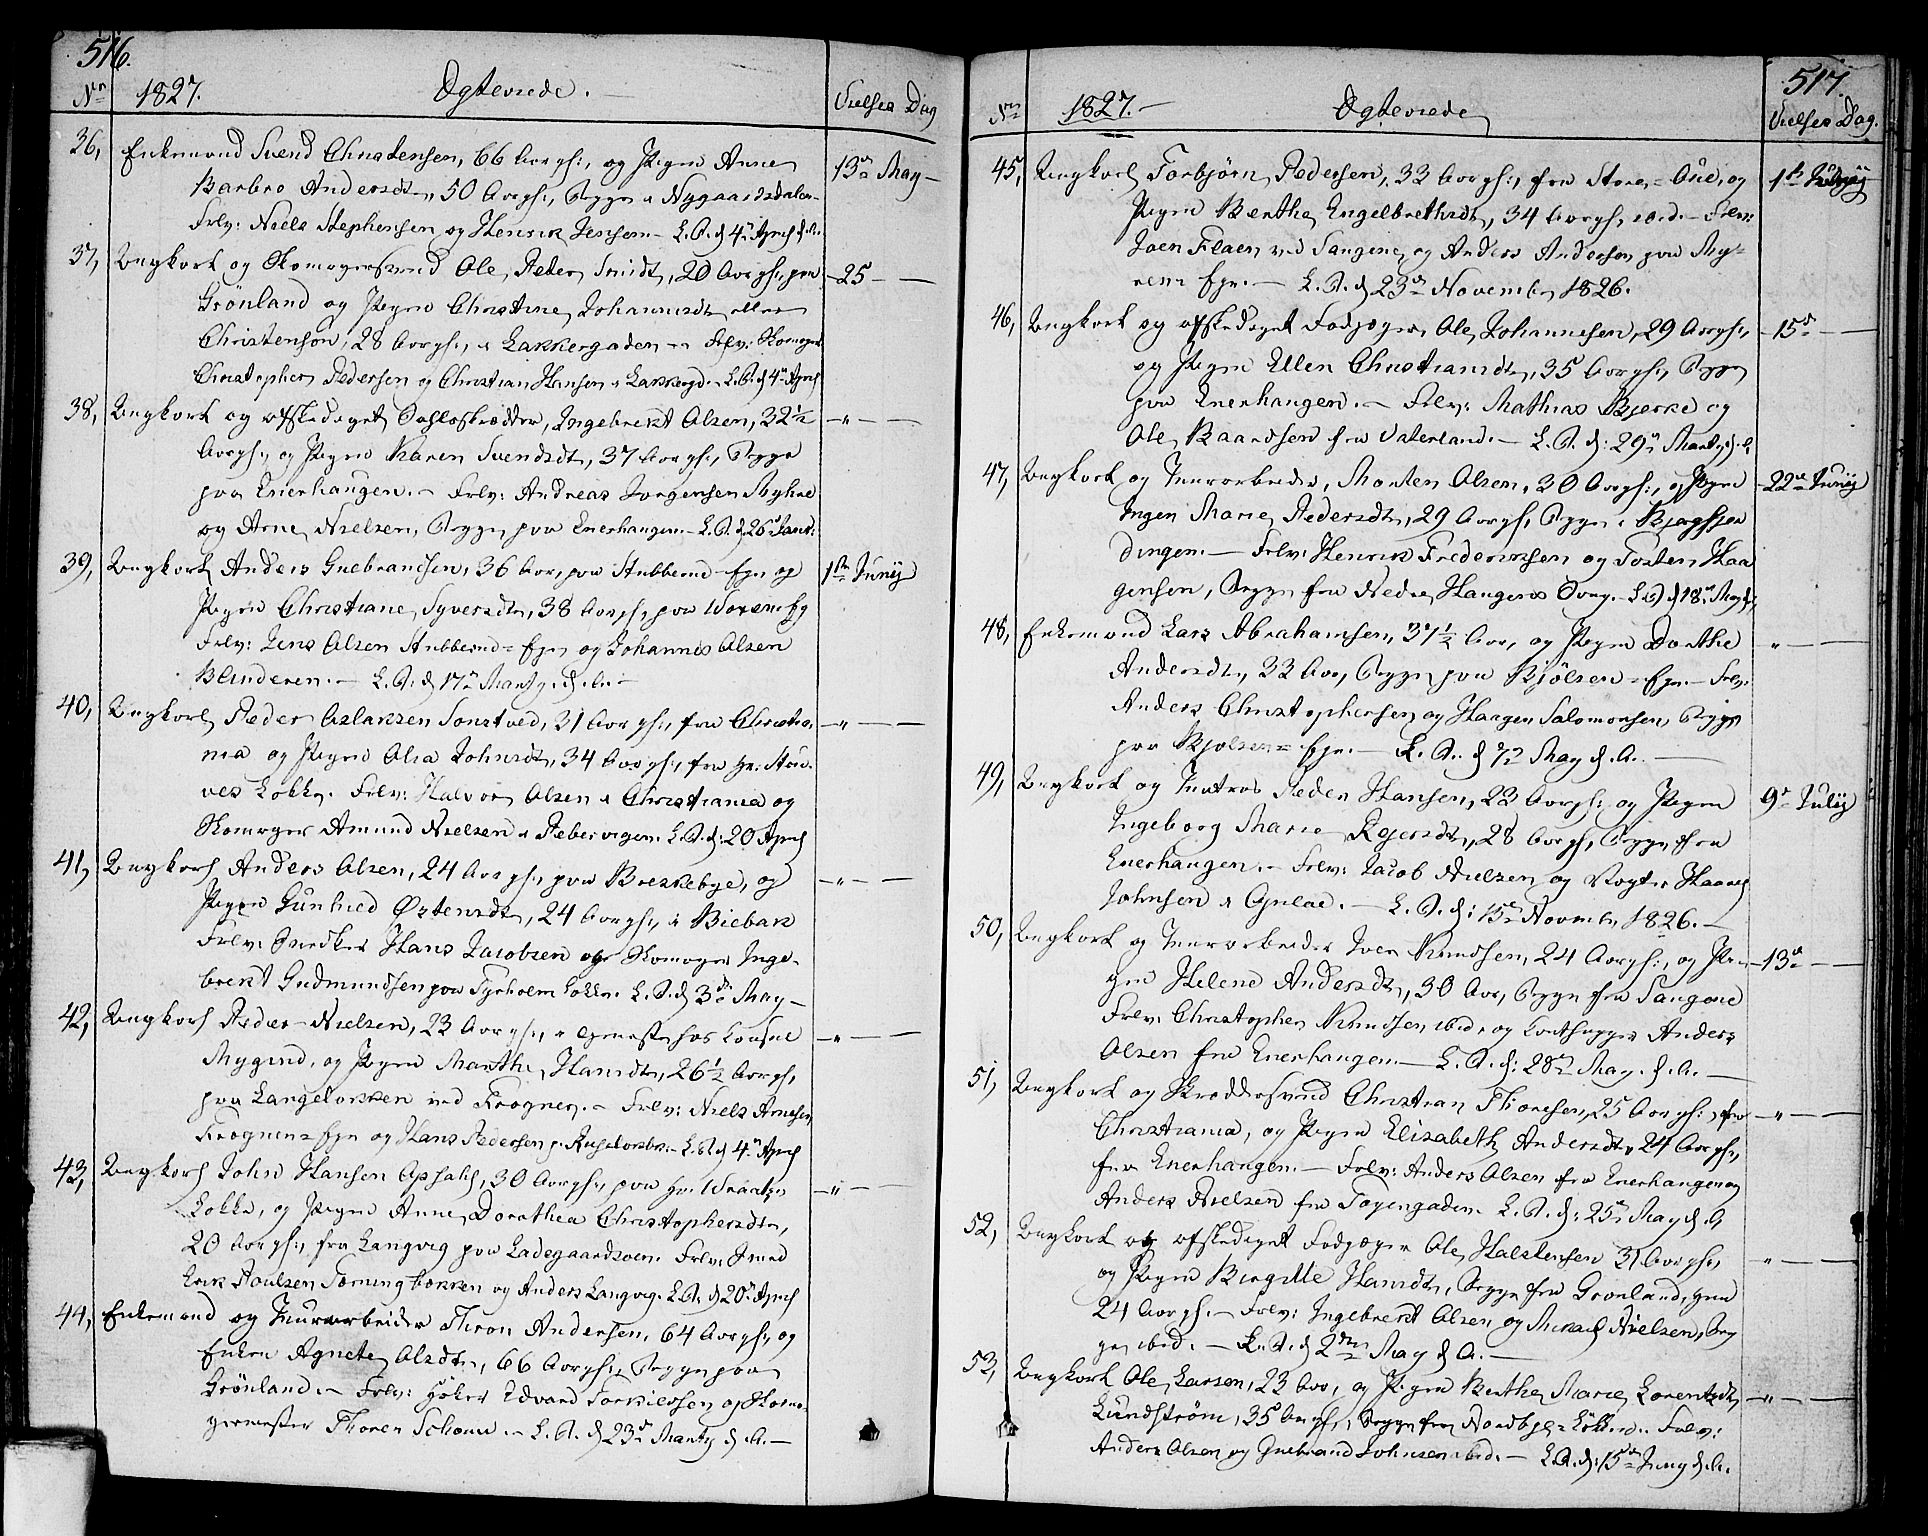 516.
No 1827. Ægteviede. Vielses Dag
36, Enkemand Svend Christensen, 66 Aar gl:, og Pigen Anne 13de May
Barbro Andersdtr, 50 Aar gl:, Begge i Nygaardsdalen
Forlv: Niels Stephensen og Henrik Jensen. L. A. d 4de April d. A.
37, Ungkarl og Skomagersvend Ole Peter Smidt, 20 Aar gl:, paa 25
Grönland og Pigen Christine Johannisdtr eller
Christensön, 28 Aar gl:, i Lakkergaden. Forlv: Skomager
Christopher Pedersen og Christian Hansen i Lakkerg. L. A. d 4de April
38, Ungkarl og afskediget Ingebrekt Olsen, 32 1/2 "
Aar gl:, og Pigen Karen Svendsdtr, 37 Aar gl:, Begge
paa Enerhaugen. Forlv: Andreas Jörgensen Myhre
og Arne Nielsen, Begge paa Enerhaugen. L. A. d. 26de
39, Ungkarl Anders Guebrandsen, 36 Aar, paa Stubberud Eje og 1ste Junij
Pigen Christiane Syversdtr, 38 Aar gl:, paa
Forlv: Jens Olsen Stubberud-Eje og Johannes Olsen
Blinderen. L. A. d 17de Martz d. A.
40, Ungkarl Peder Aslaksen Sonstved, 31 Aar gl:, fra Christia- "
nia og Pigen Olia Johnsdtr, 34 Aar gl:, fra Hr:
Lökke. Forlv: Halvor Olsen i Christiania og
Skomager Amund Nielsen i Pebervigen. L. A. d: 20 April
41, Ungkarl Anders Olsen, 24 Aar gl:, paa Breskebye, og "
Pigen Gunhild Östensdtr, 24 Aar gl:, i Biebak
Forlv: Snedker Hans Jacobsen og Skomager Inge-
brekt Gudmundsen paa Tyrholm Lökke. L. A. d 3de May
42, Ungkarl Peder Nielsen, 23 Aar gl:, i Tjeneste hos Consul "
Mygind, og Pigen Marthe Hansdtr, 26 1/2 Aar gl:,
paa Langelökken ved Frogner. Forlv: Niels Arnesen
Frogner-Eje og Hans Pedersen L. A. d 4de April
43, Ungkarl John Hansen Opsahl, 30 Aar gl:, paa Hr. "
Lökke, og Pigen Anne Dorothea Christophersdtr,
20 Aar gl:, fra Langvig paa Ladegaardsöen. Forlv:
Erik Poulsen og Anders Langvig. L. A. d 20de April
44, Enkemand og Tieron Andersen, 64 Aar gl:, og
Enken Agnete Olsdtr, 66 Aar gl:, Begge paa
Grönland. Forlv: Höker Edvard Torkildsen og Skoma-
germester Thoren Schouw. L. A. d 23de Martz d. A.
517.
No 1827. Ægteviede Vielses Dag.
45, Ungkarl Torbjörn Pedersen, 33 Aar gl:, fra Store-Aue, og 1ste
Pigen Berthe Engelbrethsdtr, 34 Aar gl, ibid. Forlv:
Joen Flaen ved Sangene og Anders Andersen paa My-
rens Eje. L. A. d 23de Novembr, 1826.
46, Ungkarl og afskediget Fodjæger Ole Johannesen, 29 Aar gl:, 15de
og Pigen Ellen Christiansdtr, 35 Aar gl:, Begge
paa Enerhaugen. Forlv: Mathias Bjerke og
Ole Baardsen fra Vaterland. L. A. d: 29de Martz d. A
47, Ungkarl og Morten Olsen, 30 Aar gl:, og Pigen 22de Junij
Inger Marie Pedersdtr, 29 Aar gl, Begge i Bjergfjer
dingen. Forlv: Henrik Frederiksen og Tosten Haa
gensen, Begge fra Nedre Haugens L. A. d 18de May
48, Enkemand Lars Abrahamsen, 37 1/2 Aar, og Pigen Dorthe "
Andersdtr, 33 Aar, Begge paa Bjölsen-Eje. Forlv:
Anders Christophersen og Haagen Salomonsen, Begge
paa Bjölsen-Eje. L. A. d 7de May d. A.
49, Ungkarl og Peder Hansen, 23 Aar gl:, og Pigen 9de Julij
Ingeborg Marie Rejersdtr, 28 Aar gl, Begge fra
Enerhaugen. Forlv: Jacob Nielsen og Vogter
Johnsen i L. A. d: 15de Novembr, 1826.
50, Ungkarl og Iver Knudsen, 24 Aar gl:, og Pi- 13de
gen Helene Andersdtr, 30 Aar, Begge fra Sangene
Forlv: Christopher Knudsen, ibid. og Anders
Olsen fra Enerhaugen. L. A. d: 28de May d. A.
51, Ungkarl og Skreddersvend Christian Thoresen, 25 Aar gl:, fra "
Christiania, og Pigen Elizabeth Andersdtr 24 Aar gl:,
fra Enerhaugen. Forlv: Anders Olsen fra Enerhaugen og
Anders Nielsen fra Töyengaden. L. A. d: 25de May d. A
52, Ungkarl og afskediget Fodjæger Ole Halstensen 31 Aar gl:, "
og Pigen Birgitte Hansdtr, Begge fra Grönland, hun
24 Aar gl. Forlv: Ingebrekt Olsen og Nielsen, Beg
ge ibid. L. A. d 2den May d. A.
53, Ungkarl Ole Larsen, 23 Aar, og Pigen Berthe Marie Lorentzdtr "
Lundström, 35 Aar gl:, Begge fra Nordbye-Lökken. Forlv:
Anders Olsen og Guebrand Johnsen ibid. L. A. d: 15de Juny d. A.